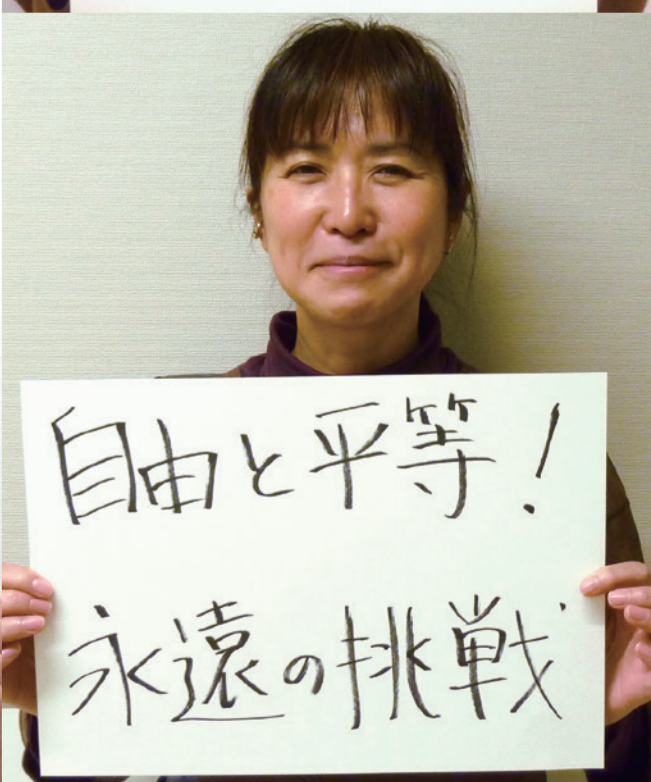 自由と平等!
永遠の挑戦